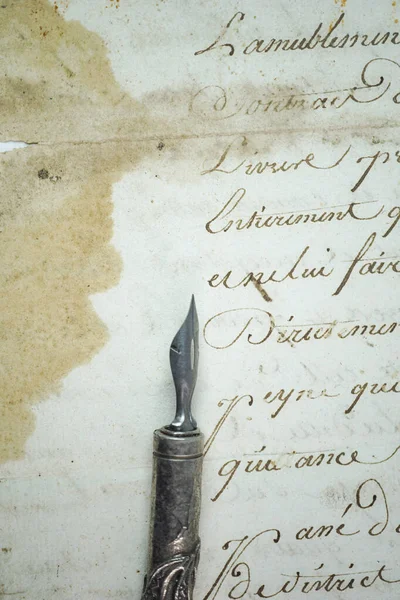 Lamublemen
Contract
Livure pr
Entierement q
et ne lui faire
Dirictemen
peyne qui
quitance
pané d
de district